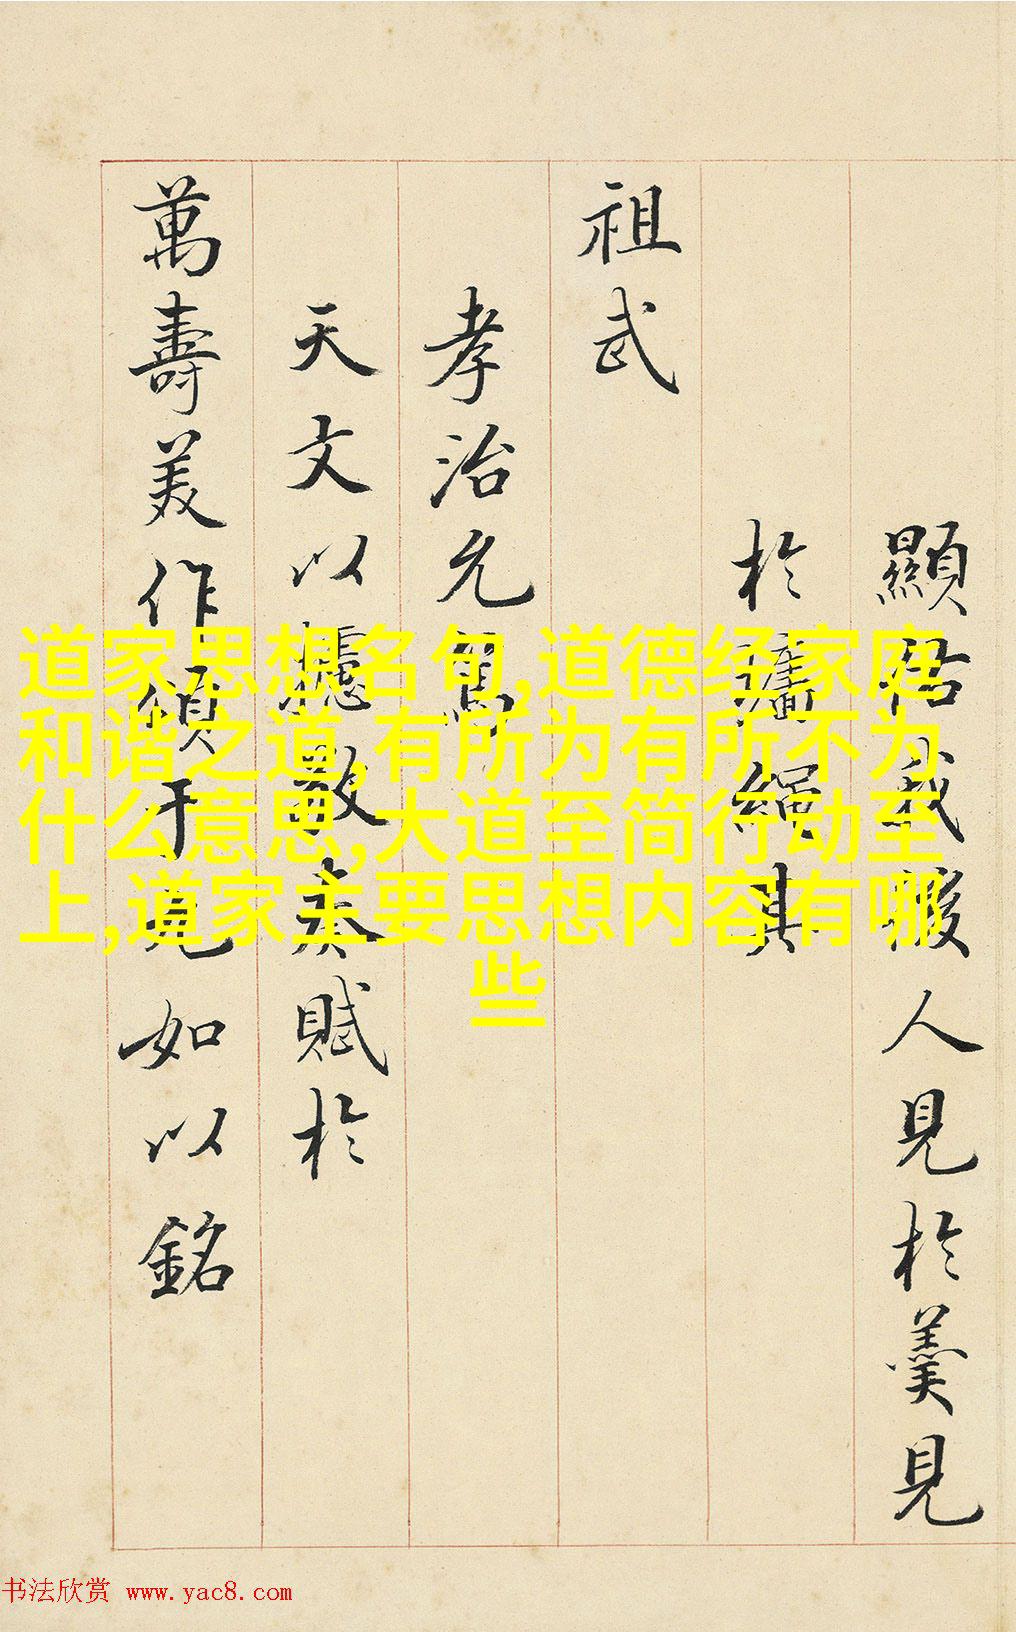 顯佑我後人見於羹見
於牆繩其
祖武
孝治允
天文以奏賦於
萬壽美作頌于如以銘
道家思想名句,道德经家庭
和谐之道,有所为有所不为
什么意思,大道至简行动至
上,道家主要思想内容有哪
些
书法欣赏 www.yac8.com